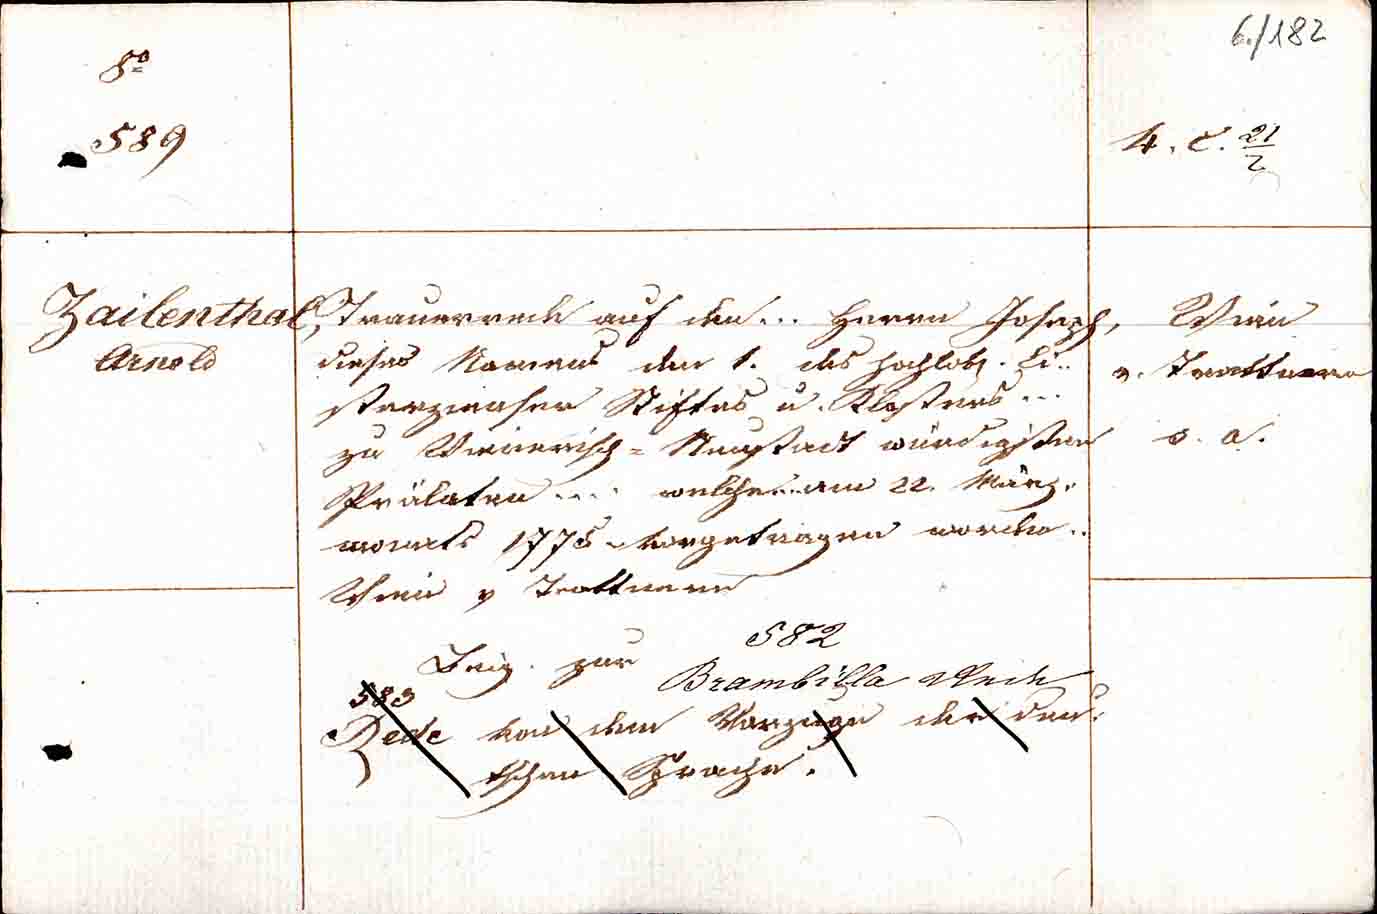 6./182
8°
589
4. C. 21/2
Zailenthal,
Arnold
Trauerrede auf den ... Herrn Joseph,
dieses Namens den 1. des hochlobl. Ci..
sterzienser Stiftes u. Klosters ...
zu Wienerisch=Neustadt würdigsten
Prälaten .... welche .. am 22. März.
monats 1775 vorgetragen worden ..
Wien v Trattnern
Wien
v. Trattnern
o. a.
582
zur
Brambilla Rede
583
Rede von dem Vorzuge der deu.
tschen Sprache.